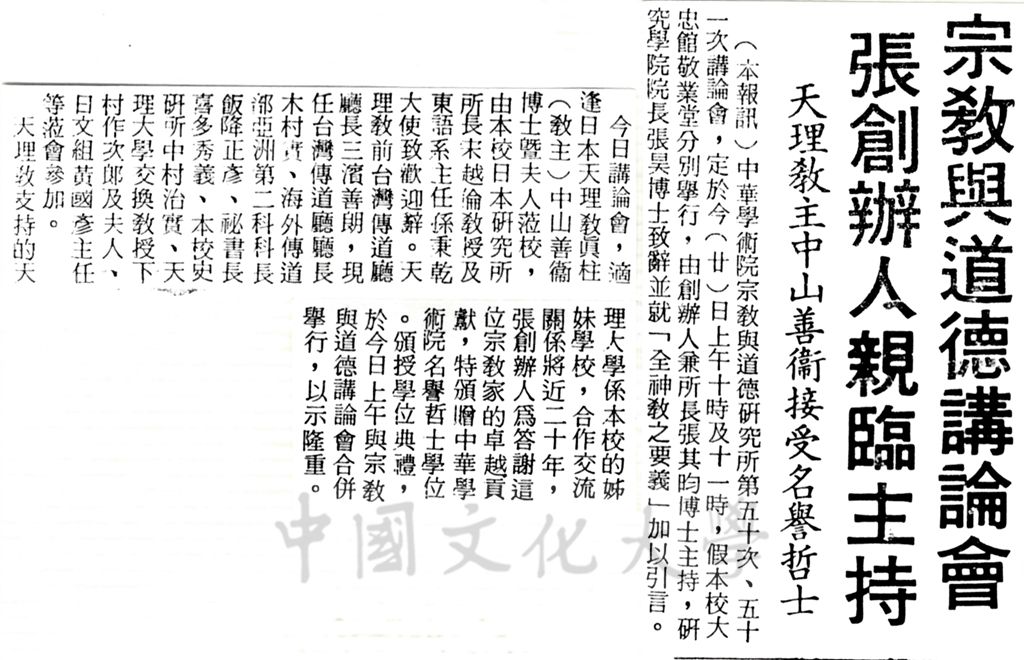 宗教與道德講論會
張創辦人親臨主持
天理教主中山善衞接受名譽哲士
（本報訊）中華學術院宗教與道德研究所第五十次、五十
一次講論會，定於今（廿）日上午十時及十一時，假本校大
忠館敬業堂分別舉行，由創辦人兼所長張其昀博士主持，研
究學院院長張昊博士致辭並就「全神教之要義」加以引言。
今日講論會，適
逢日本天理教眞柱
（教主）中山善衞
博士暨夫人蒞校，
由本校日本研究所
所長宋越倫教授及
東語系主任孫秉乾
大使致歡迎辭。天
理教前台灣傳道廳
廳長三濱善朗，現
任台灣傳道廳廳長
木村實、海外傳道
部亞洲第二科科長
飯降正彥、祕書長
喜多秀義、本校史
研所中村治實、天
理大學交換教授下
村作次郎及夫人、
日文組黃國彥主任
等蒞會參加。
天理教支持的天
理大學係本校的姊
妹學校，合作交流
關係將近二十年，
張創辦人爲答謝這
位宗教家的卓越貢
獻，特頒贈中華學
術院名譽哲士學位
。頒授學位典禮，
於今日上午與宗教
與道德講論會合併
舉行，以示隆重。
中國文化大學